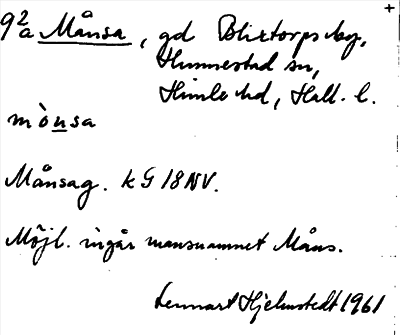 9 2/a Månsa, gd Blixtorps by,
Hunnestad sn,
Himle hd, Hall. l.
mò̀nsa
Månsag. kG 18 NV.
Möjl. ingår mansnamnet Måns.
Lennart Hjelmstedt 1961